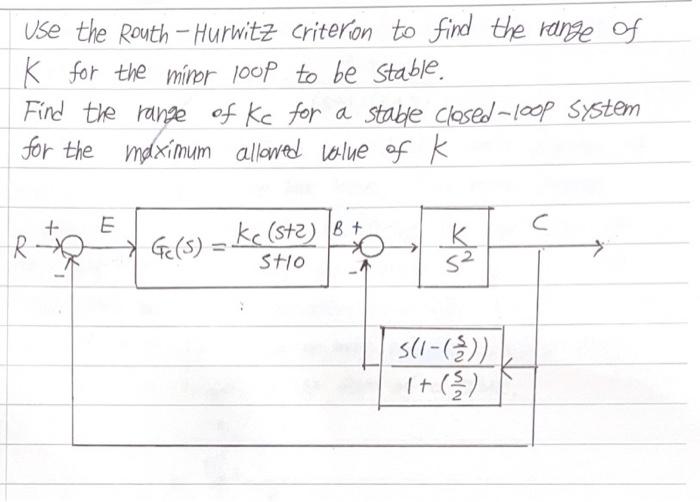 Use the Routh-Hurwitz criterion to find the range of
K for the minor loop to be stable.
Find the range of Kc for a stable closed-loop system
for the maximum allowed value of K
R + - E Gc(s) = Kc(s+2) / s+10 B + - K / s² C
s(1-(s/2)) / 1+(s/2)